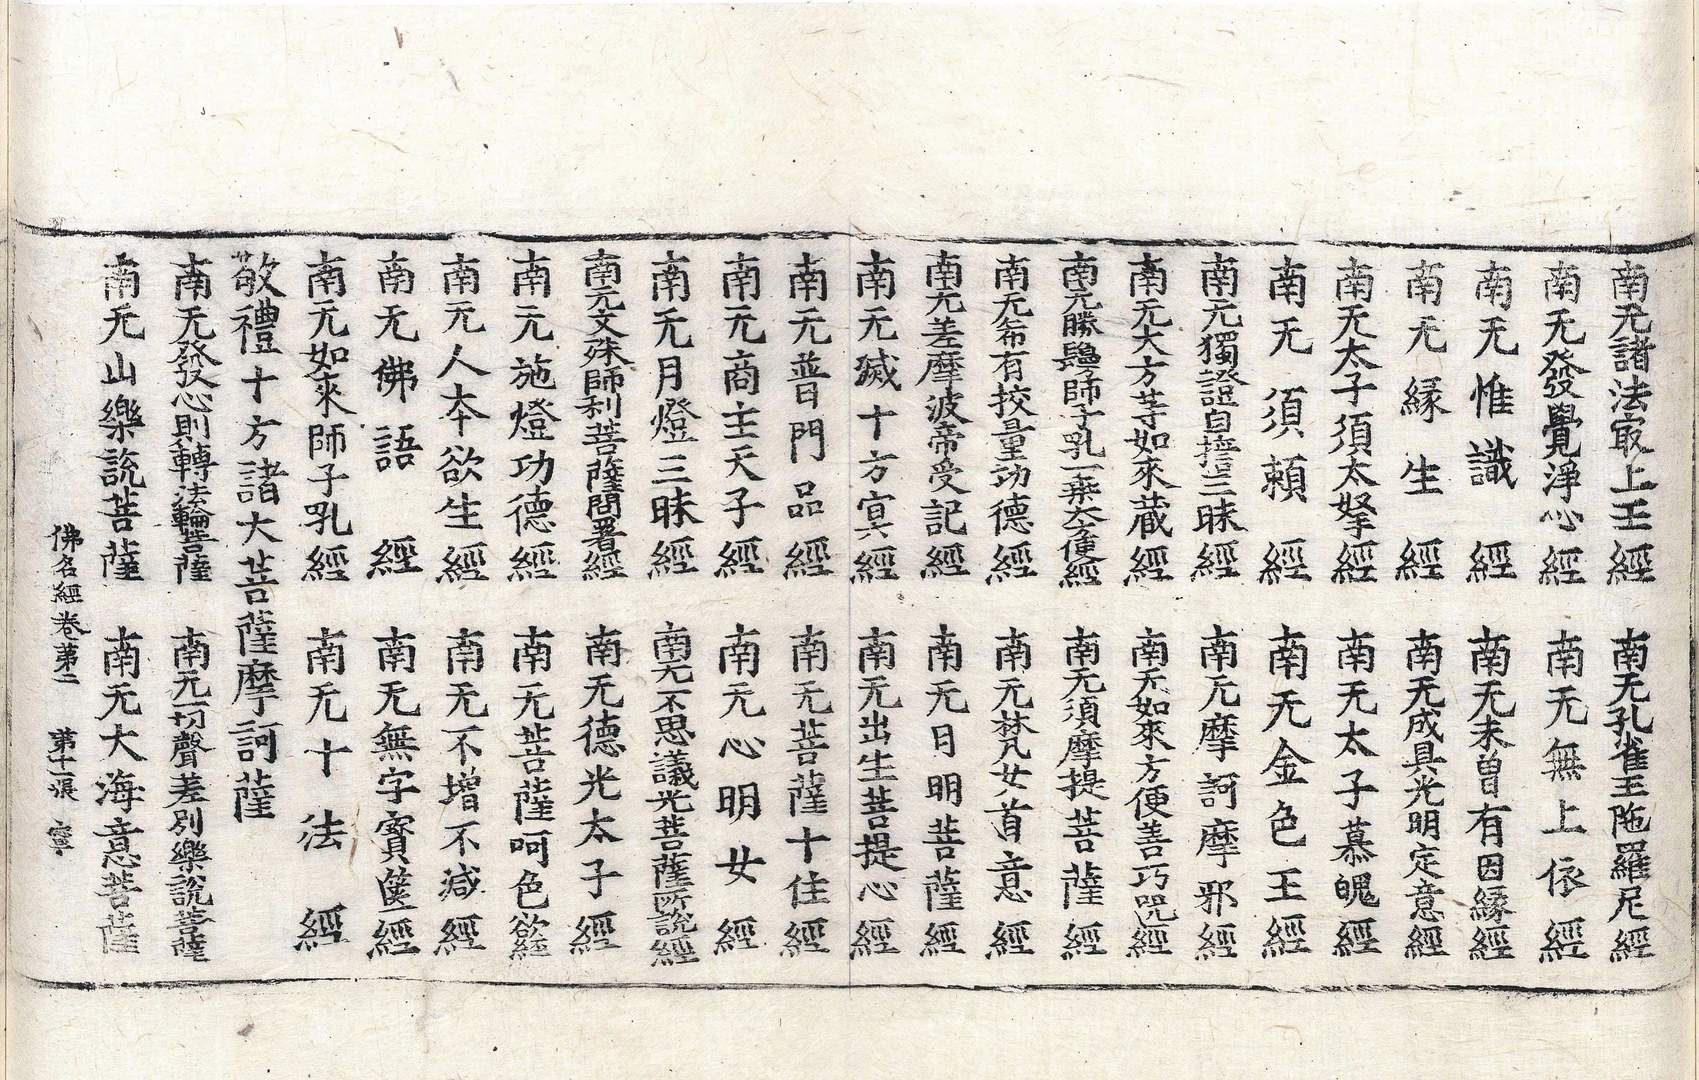 南无諸法㝡上王經　南无孔雀王陁羅尼經
南无發覺淨心經　南无無上依經
南无惟識經　南无未曾有因縁經
南无縁生經　南无成具光明定意經
南无太子須太拏經　南无太子慕魄經
南无須賴經　南无金色王經
南无獨證自誓三昧經　南无摩訶摩邪經
南无大方等如來蔵經　南无如來方便善巧呪經
南无勝鬘師子吼一乘大方便經　南无須摩提菩薩經
南无希有挍量功德經　南无梵女首意經
南无差摩波帝受記經　南无日明菩薩經
南无滅十方冥經　南无出生菩提心經
南无普門品經　南无菩薩十住經
南无商主天子經　南无心明女經
南无月燈三昧經　南无不思議光菩薩所說經
南无文殊師利菩薩問署經　南无德光太子經
南无施燈功德經　南无菩薩呵色欲經
南无人本欲生經　南无不增不減經
南无佛語經　南无無字寶篋經
南无如來師子吼經　南无十法經
敬禮十方諸大菩薩摩訶薩
南无發心則轉法輪菩薩　南无一切聲差別樂說菩薩
南无山樂說菩薩　南无大海意菩薩
佛名經卷第二　第十一張　寧